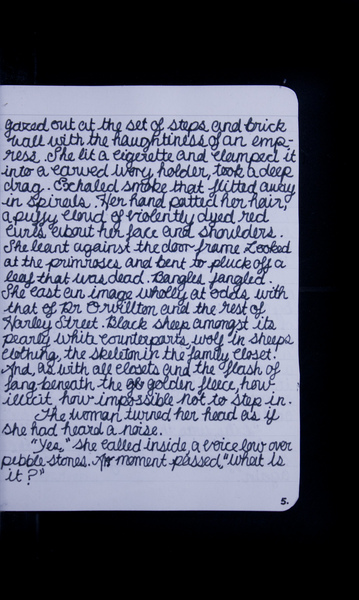 gazed out at the set of steps and brick
wall with the haughtiness of an emp-
ress. She lit a cigerette and clamped it
into a carved ivory holder, took a deep
drag. Exhaled smoke that flitted away
in spirels. Her hand patted her hair,
a puffy cloud of violently dyed red
curls about her face and shoulders.
She leant against the door frame. Looked
at the primroses and bent to pluck off a
leaf that was dead. Bangles jangled.
She cast an image wholly at odds with
that of Dr Orwillton and the rest of
Harley Street. Black sheep amongst its
pearly white counterparts, wolf in sheeps
clothing, the skeleton in the family closet.
And as with all closets and the flash of
fang beneath the golden fleece, how
illicit how impossible not to step in.
The woman turned her head as if
she had heard a noise.
"Yes," she called inside, a voice low over
pebble stones. A moment passed, "What is
it?"
5.